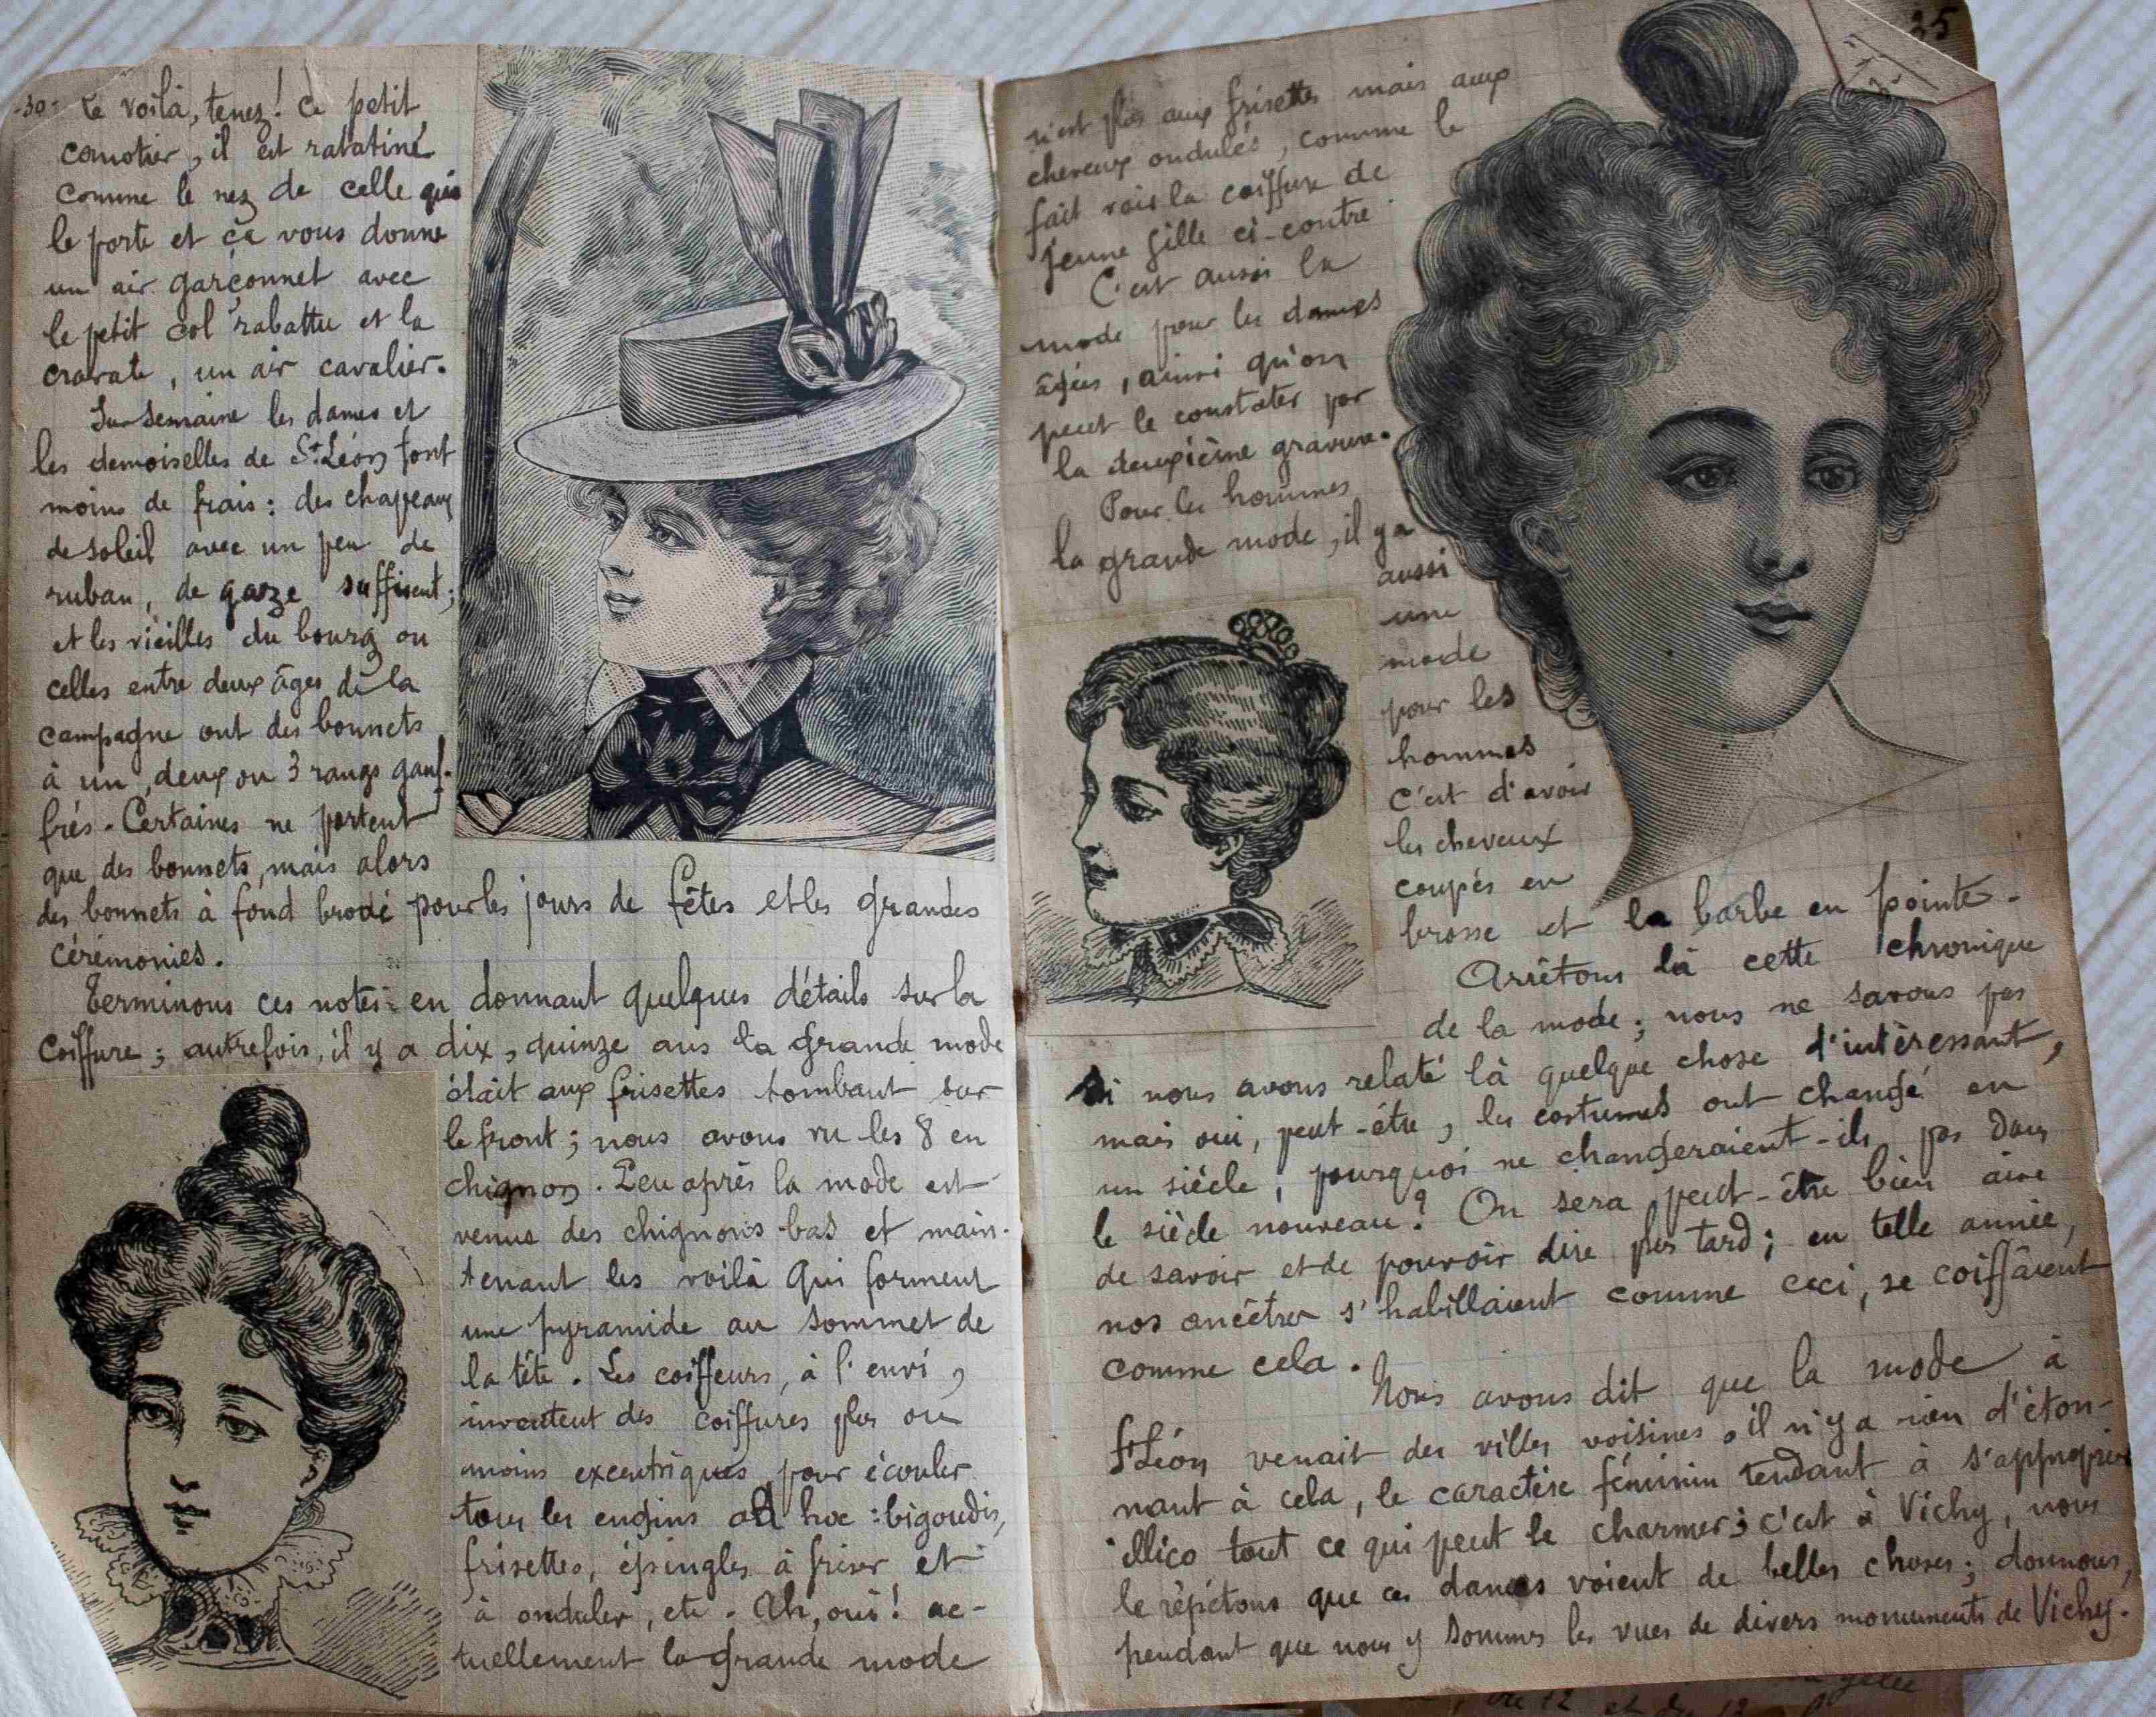 -30- Le voilà, tenez! Ce petit
canotier, il est ratatiné
comme le nez de celle qui
le porte et ça vous donne
un air garçonnet avec
le petit col rabattu et la
cravate, un air cavalier.
Su semaine les dames et
les demoiselles de St Léon font
moins de frais: des chapeaux
de soleil avec un peu de
ruban, de gaze suffisent;
et les vieilles du bourg ou
celles entre deux âges de la
campagne ont des bonnets
à un, deux ou 3 rangs gauf-
frés. Certaines ne portent
que des bonnets, mais alors
des bonnets à fond brodé pour les jours de fêtes et les grandes
cérémonies.
Terminons ces notes en donnant quelques détails sur la
coiffure; autrefois, il y a dix, quinze ans la grande mode
était aux frisettes tombant sur
le front; nous avons vu les 8 en
chignon. Peu après la mode est
venue des chignons bas et main-
tenant les voilà qui forment
une pyramide au sommet de
la tête. Les coiffeurs, à l'envi,
inventent des coiffures plus ou
moins excentriques pour écouler
tous les engins ad hoc: bigoudis,
frisettes, épingles à friser et
à onduler, etc. Ah, oui! ac-
tuellement la grande mode
35
n'est plus aux frisettes mais aux
cheveux ondulés, comme le
fait voir la coiffure de
jeune fille ci-contre.
C'est aussi la
mode pour les dames
âgées, ainsi qu'on
peut le constater par
la deuxième gravure.
Pour les hommes
la grande mode, il y a
aussi
une
mode
pour les
hommes
c'est d'avoir
les cheveux
coupés en
brosse et la barbe en pointe.
Arrêtons là cette chronique
de la mode; nous ne savons pas
si nous avons relaté là quelque chose d'intéressant,
mais oui, peut-être, les costumes ont changé en
un siècle, pourquoi ne changeraient-ils pas dans
le siècle nouveau? On sera peut-être bien aise
de savoir et de pouvoir dire plus tard; en telle année,
nos ancêtres s'habillaient comme ceci, se coiffaient
comme cela.
Nous avons dit que la mode à
St Léon venait des villes voisines, il n'y a rien d'éton-
nant à cela, le caractère féminin tendant à s'approprier
illico tout ce qui peut le charmer; c'est à Vichy, nous
le répétons que ces dames voient de belles choses; donnons,
pendant que nous y sommes les vues de divers monuments de Vichy.